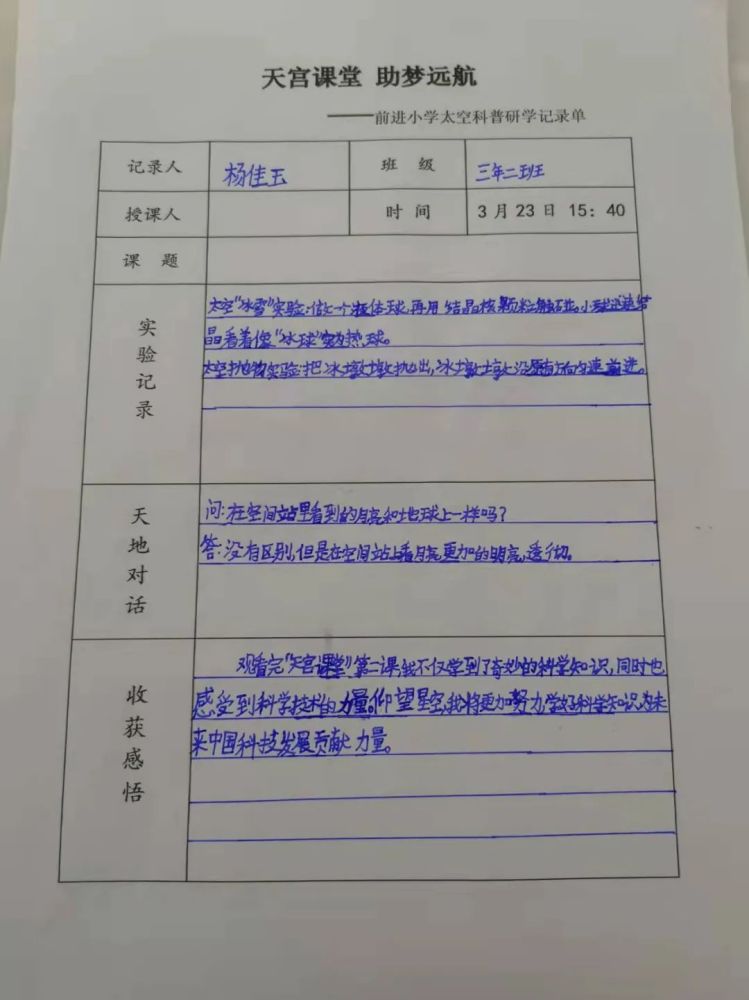 天宫课堂 助梦远航
——前进小学太空科普研学记录单
记录人 杨佳玉 班 级 三年二班
授课人 时 间 3月23日 15：40
课 题
实验记录
太空“冰雪”实验：做一个液体球，再用结晶核颗粒触碰。小球迅速结
晶看着像“冰球”实为热球。
太空抛物实验：把冰墩墩抛出，冰墩墩沿原有方向匀速前进。
天地对话
问：在空间站里看到的月亮和地球上一样吗？
答：没有区别，但是在空间站上看月亮更加的明亮，透彻。
收获感悟
观看完“天宫课堂”第二课，我不仅学到了奇妙的科学知识，同时也
感受到科学技术的力量。仰望星空，我将更加努力，学好科学知识，为未
来中国科技发展贡献力量。